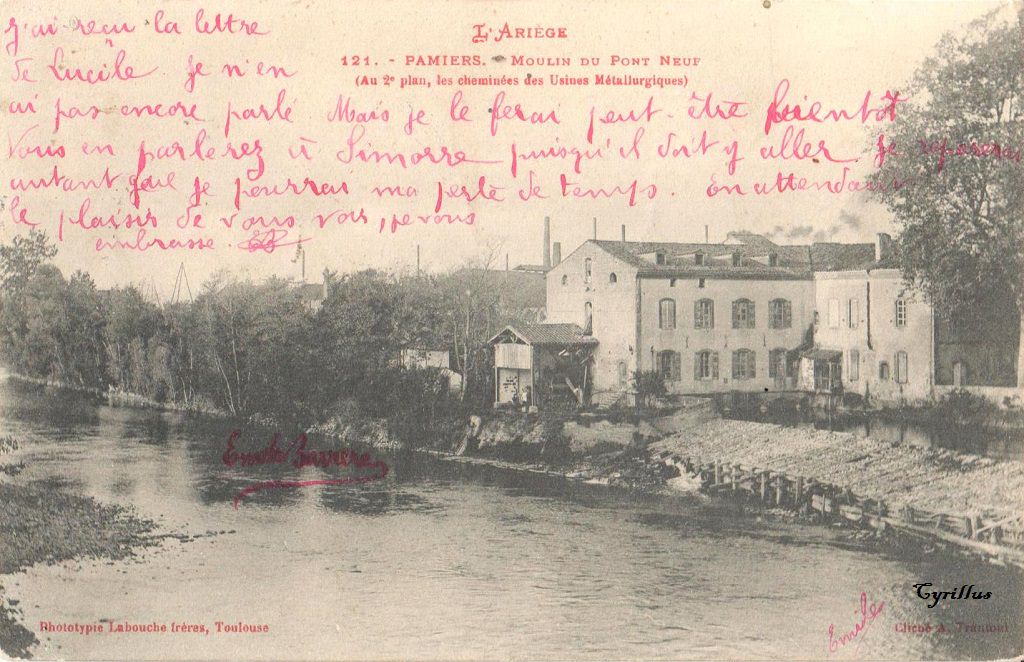 L'ARIÈGE
121. - PAMIERS. - MOULIN DU PONT NEUF
(Au 2e plan, les cheminées des Usines Métallurgiques)
J'ai reçu la lettre
de Lucile. Je n'en
ai pas encore parlé Mais je le ferai peut-être bientôt
Vous en parlerez à Simorre puisqu'il doit y aller. Je
autant que je pourrai ma perte de temps. En attendant
le plaisir de vous voir, je vous
embrasse.
Emile
Emile
Phototypie Labouche frères, Toulouse
Cyrillus
Cliché A.